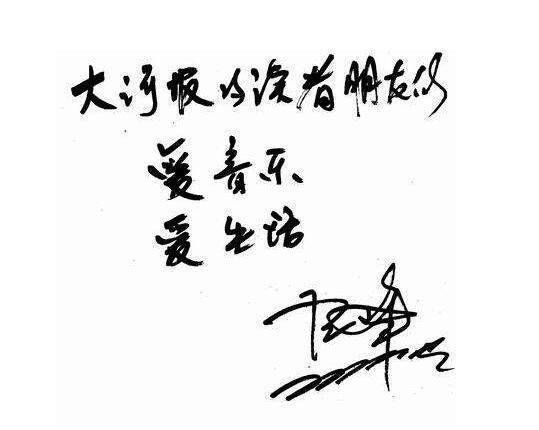 大河报的读者朋友们
爱音乐
爱生活